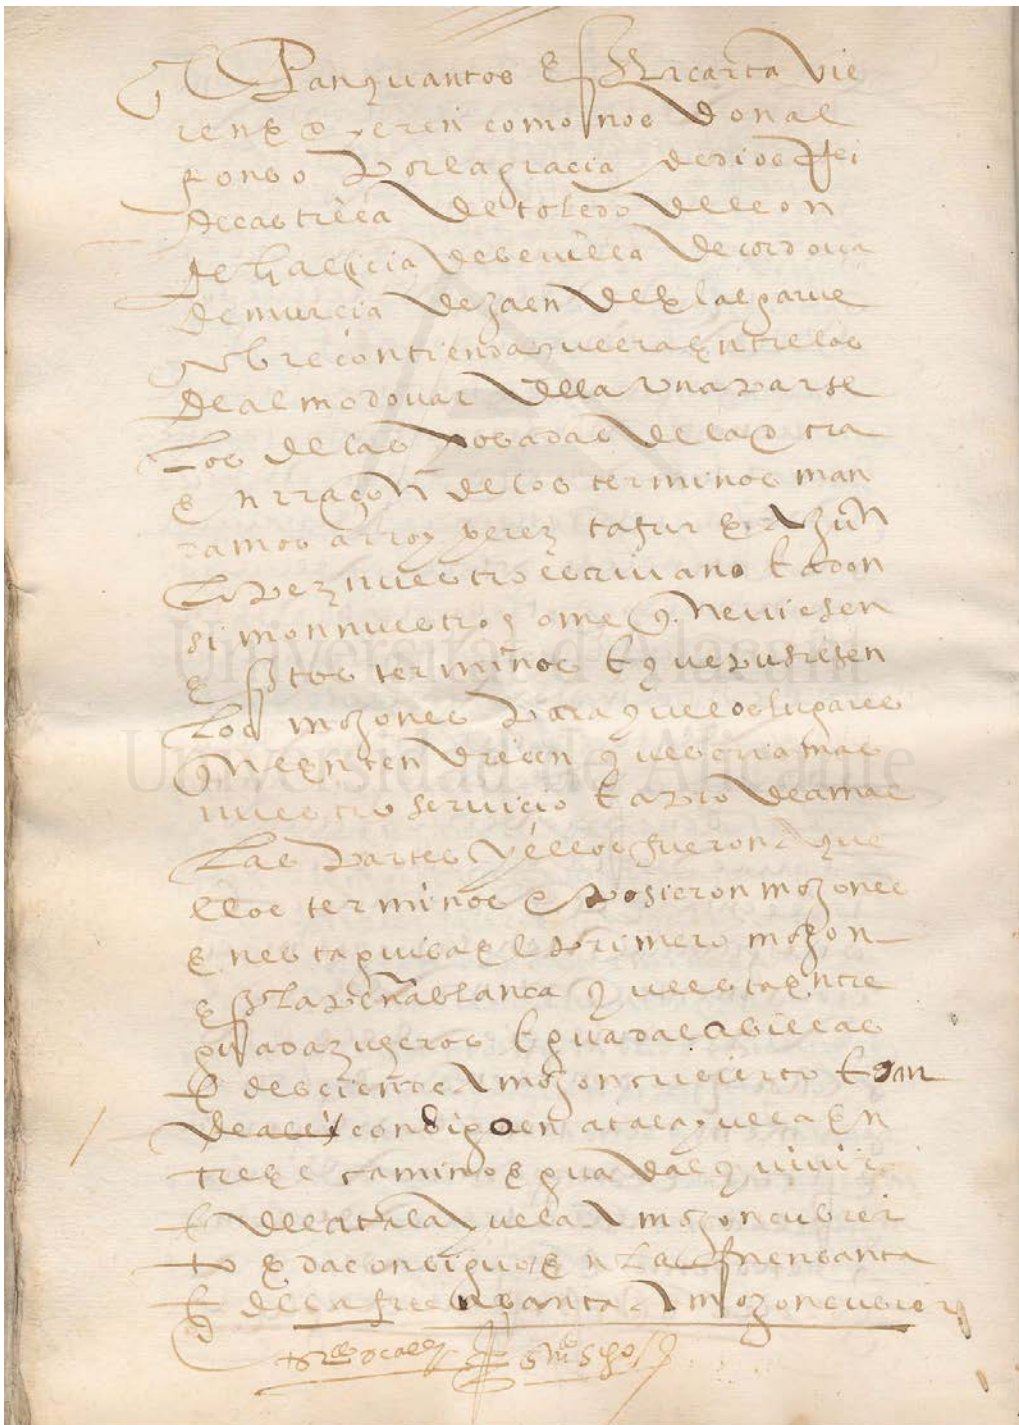 Pan quantos esta carta vie
ren e oyeren como nos don al
fonso por la gracia de dios Rei
de castilla de toledo de leon
de galicia de sevilla de cordova
de murcia de jaen del algarve
sobre contienda que era entre los
de almodovar de la una parte
Los de las posadas de la otra
en rraçon de los terminos man
damos a rroy perez tafur e a
Lopez nuestro escrivano E a don
simon nuestro ome que viesen
estos terminos E que pusiesen
Los mojones para que los lugares
que entendiesen que seria mas
nuestro servicio E a pro de amas
Las partes y ellos fueron aque
llos terminos e posieron mojones
en esta guisa el primero mojon
es la peña blanca que esta entre
guadazugeros E guadalcabillas
E desciende a mojon cubierto E dan
de alli consigo en atalayuela en
tre el camino e guadalquivir
E del atalayuela a mojon cubier
to e da consigo en La fuensanta
E de la fuensanta a mojon cubier